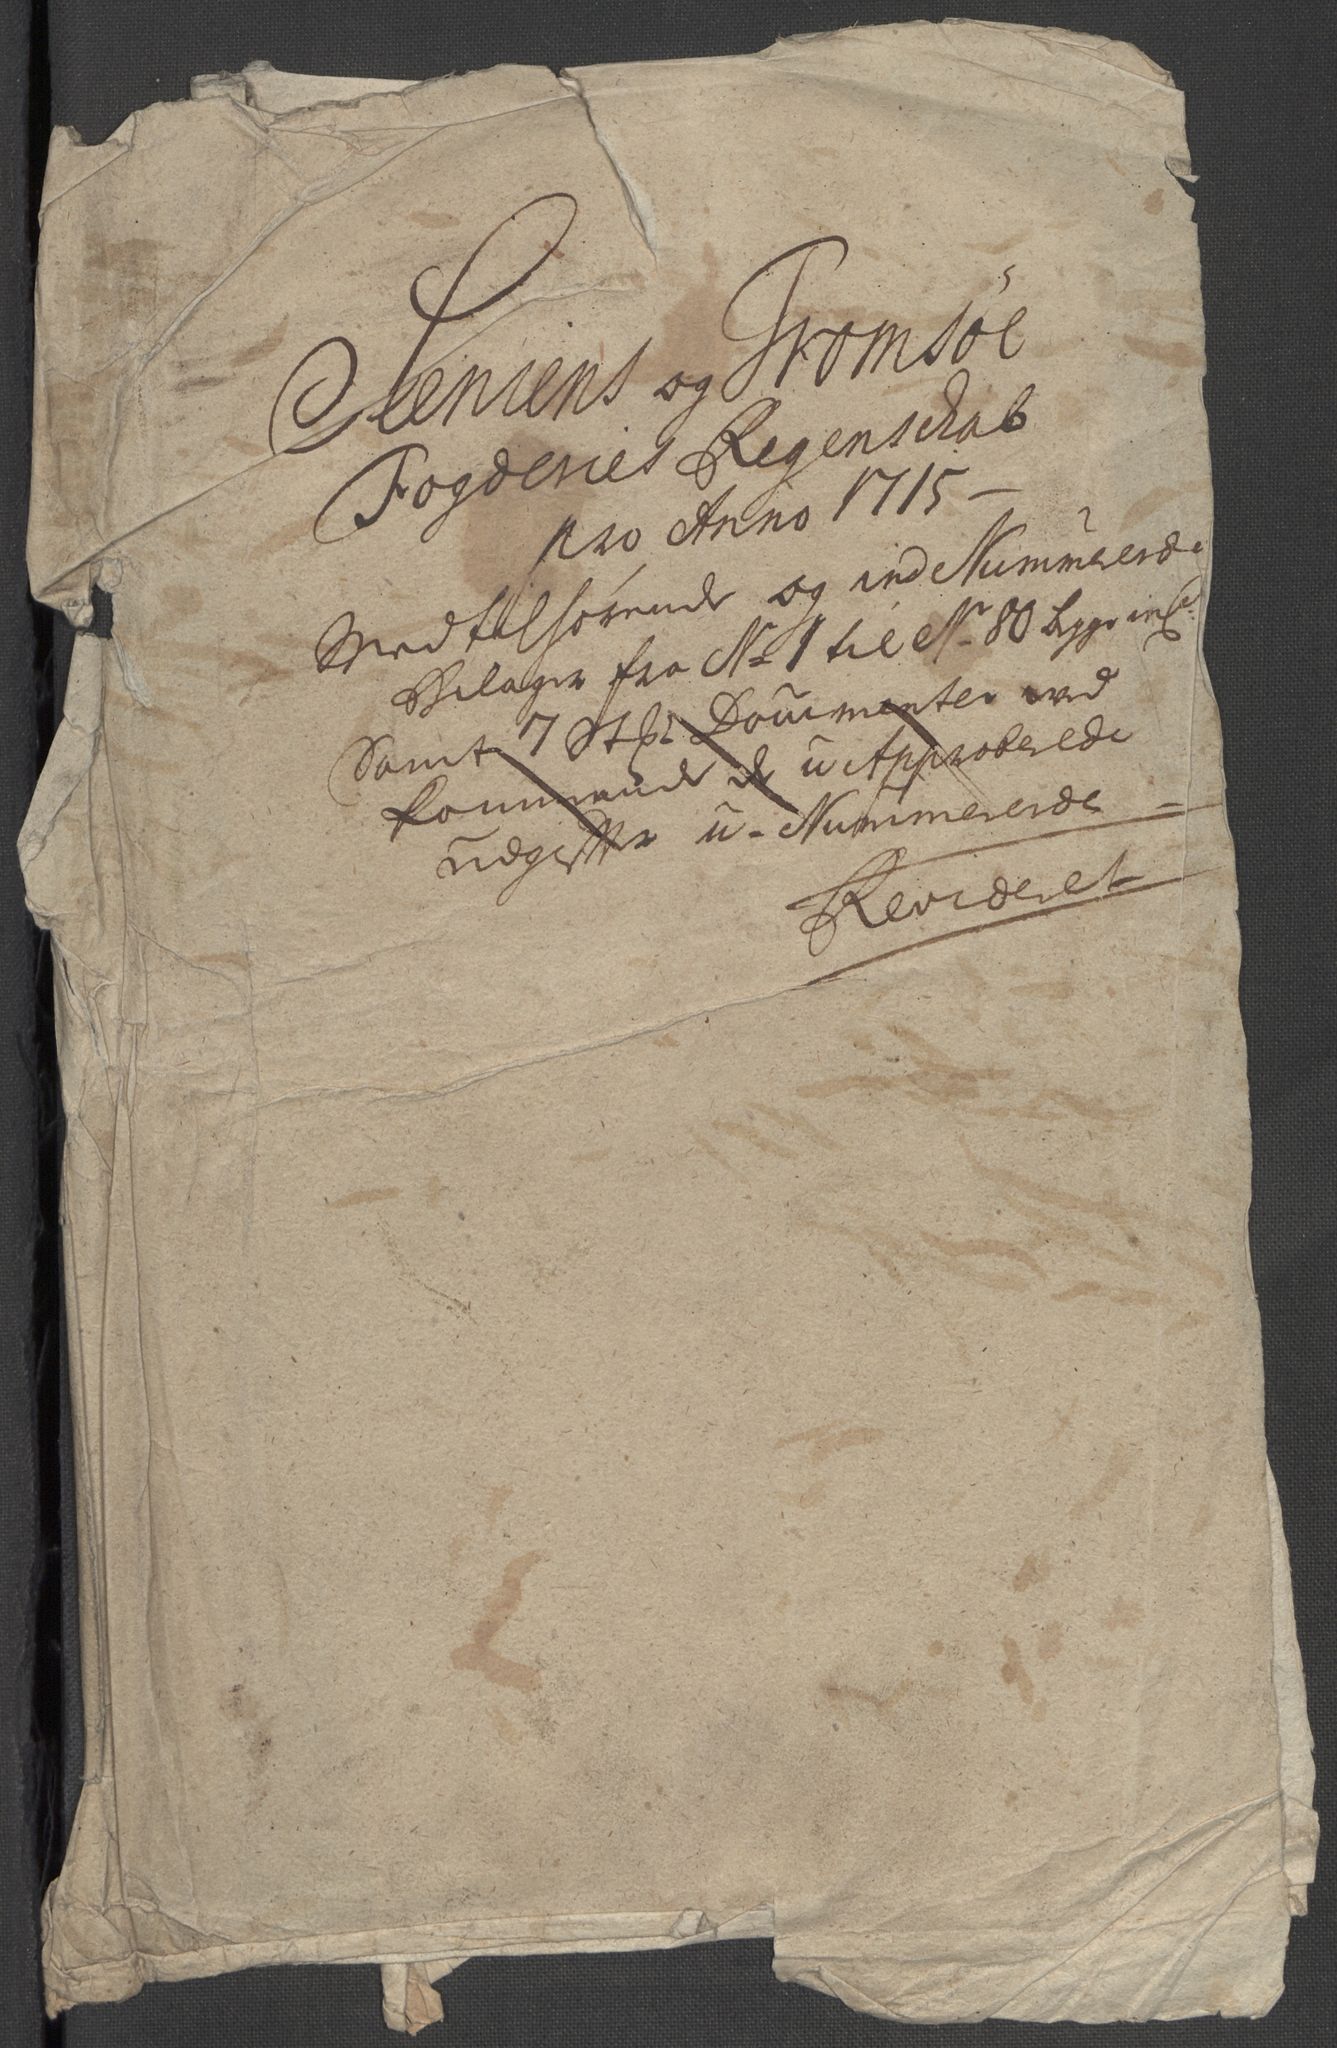 Seniens og Tromsöe
Fogderies Regenschab
pro Anno 1715 -
Med tilhörende og ind Nummererde
Bilager fra No 1 til No 80 begge incl:
Samt 7 St: Documenter ved
kommende de u-Approberede
udgifter u-Nummererde
Revideret